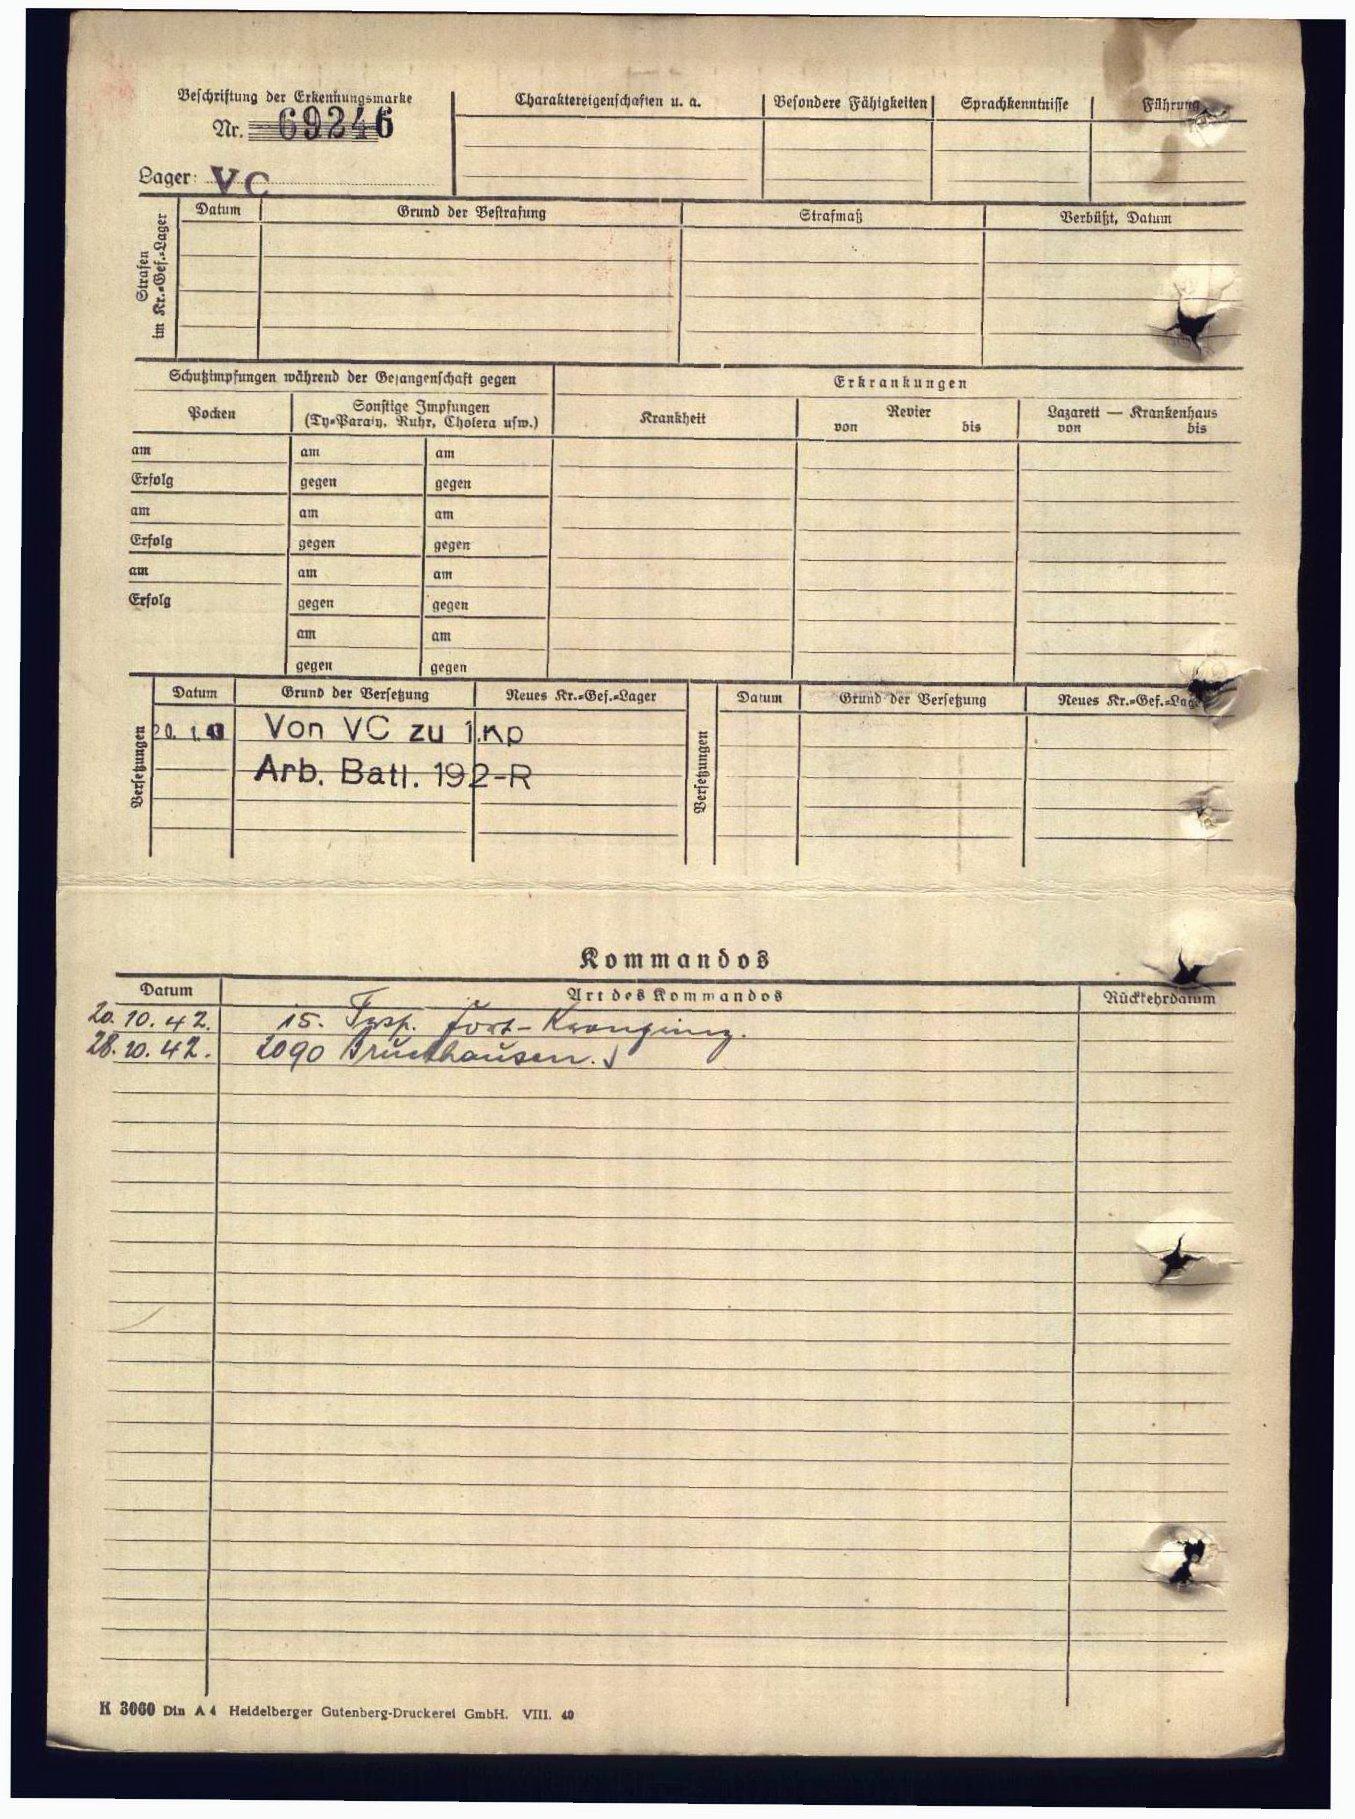 Beschriftung der Erkennungsmarke
Nr. 69246
Lager: VC
Charaktereigenschaften u. a.
Besondere Fähigkeiten
Sprachkenntnisse
Führung
Strafen
im Kr.=Gef.=Lager
Datum
Grund der Bestrafung
Strafmaß
Verbüßt, Datum
Schutzimpfungen während der Gefangenschaft gegen
Erkrankungen
Pocken
Sonstige Impfungen
(Ty=Paraty, Ruhr, Cholera usw.)
Krankheit
Revier
von bis
Lazarett — Krankenhaus
von bis
am am am
Erfolg gegen gegen
am am am
Erfolg gegen gegen
am am am
Erfolg gegen gegen
am am
gegen gegen
Versetzungen
Datum Grund der Versetzung Neues Kr.=Gef.=Lager
20. 1. 43 Von VC zu 1.Kp
Arb. Batl. 192-R
Versetzungen
Datum Grund der Versetzung Neues Kr.=Gef.=Lage
Kommandos
Datum Art des Kommandos Rückkehrdatum
20. 10. 42. 15.
28. 10. 42. 2090 Bruchhausen.
K 3060 Din A 4 Heidelberger Gutenberg-Druckerei GmbH. VIII. 40